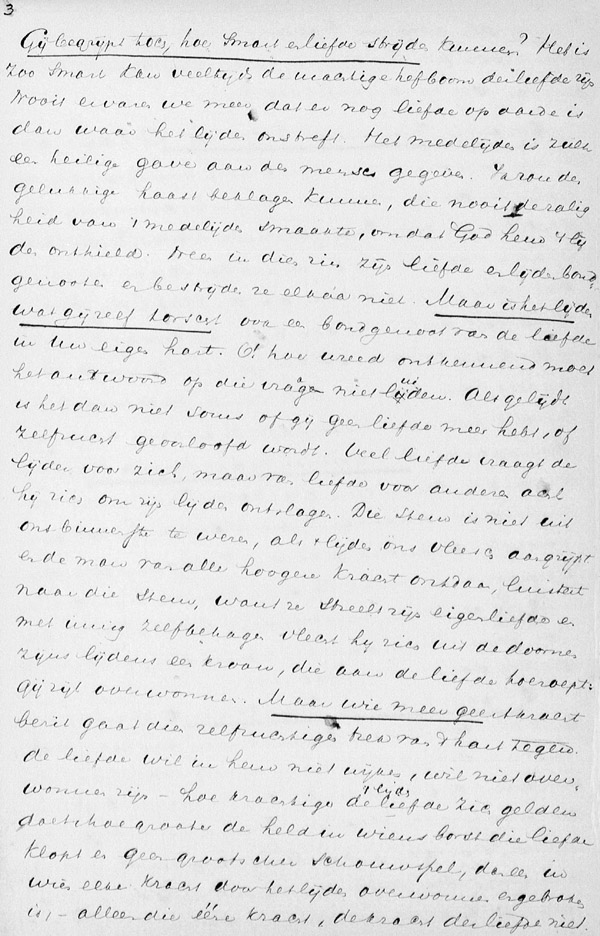 3
Gij begrijpt toch, hoe smart en liefde strijden kunnen? Het is
zoo smart kan veeltijds de machtige hefboom der liefde zijn
Nooit ervaren we meer, dat er nog liefde op aarde is
dan waar het lijden ons treft. Het medelijden is zulk
een heilige gave aan den mensch gegeven. 'k zou den
gelukkige haast beklagen kunnen, die nooit de zalig
heid van 't medelijden smaakte, omdat God hem 't lij
den onthield. Neen in dien zin zijn liefde en lijden bond-
genooten en bestrijden ze elkaar niet. Maar is het lijden
wat gij zelf torscht ook een bondgenoot van de liefde
in Uw eigen hart. O! hoe wreed ontkennend moet
het antwoord op die vragen niet luiden. Als gij lijdt
is het dan niet soms of gij geen liefde meer hebt, of
zelfzucht geoorloofd wordt. Veel liefde vraagt de
lijder voor zich, maar van liefde voor anderen acht
hij zich om zijn lijden ontslagen. Die stem is niet uit
ons binnenste te weren, als 't lijden ons vleesch aangrijpt
en de man van alle hoogere kracht ontdaan, luistert
naar die stem, want ze streelt zijn eigenliefde en
met innig zelfbehagen vlecht hij zich uit de doornen
zijns lijdens een kroon, die aan de liefde toeroept:
gij zijt overwonnen. Maar wie meer geestkracht
bezit gaat dien zelfzuchtigen trek van 't hart tegen.
de liefde wil in hem niet wijken, wil niet over-
wonnen zijn – hoe krachtig 't lijden de liefde zich gelden
doet, hoe grooter de held in wiens borst die liefde
klopt er geen grootscher schouwspel, dan een in
wien elke kracht door het lijden overwonnen en gebroken
is, – alleen die ééne kracht, de kracht der liefde niet.